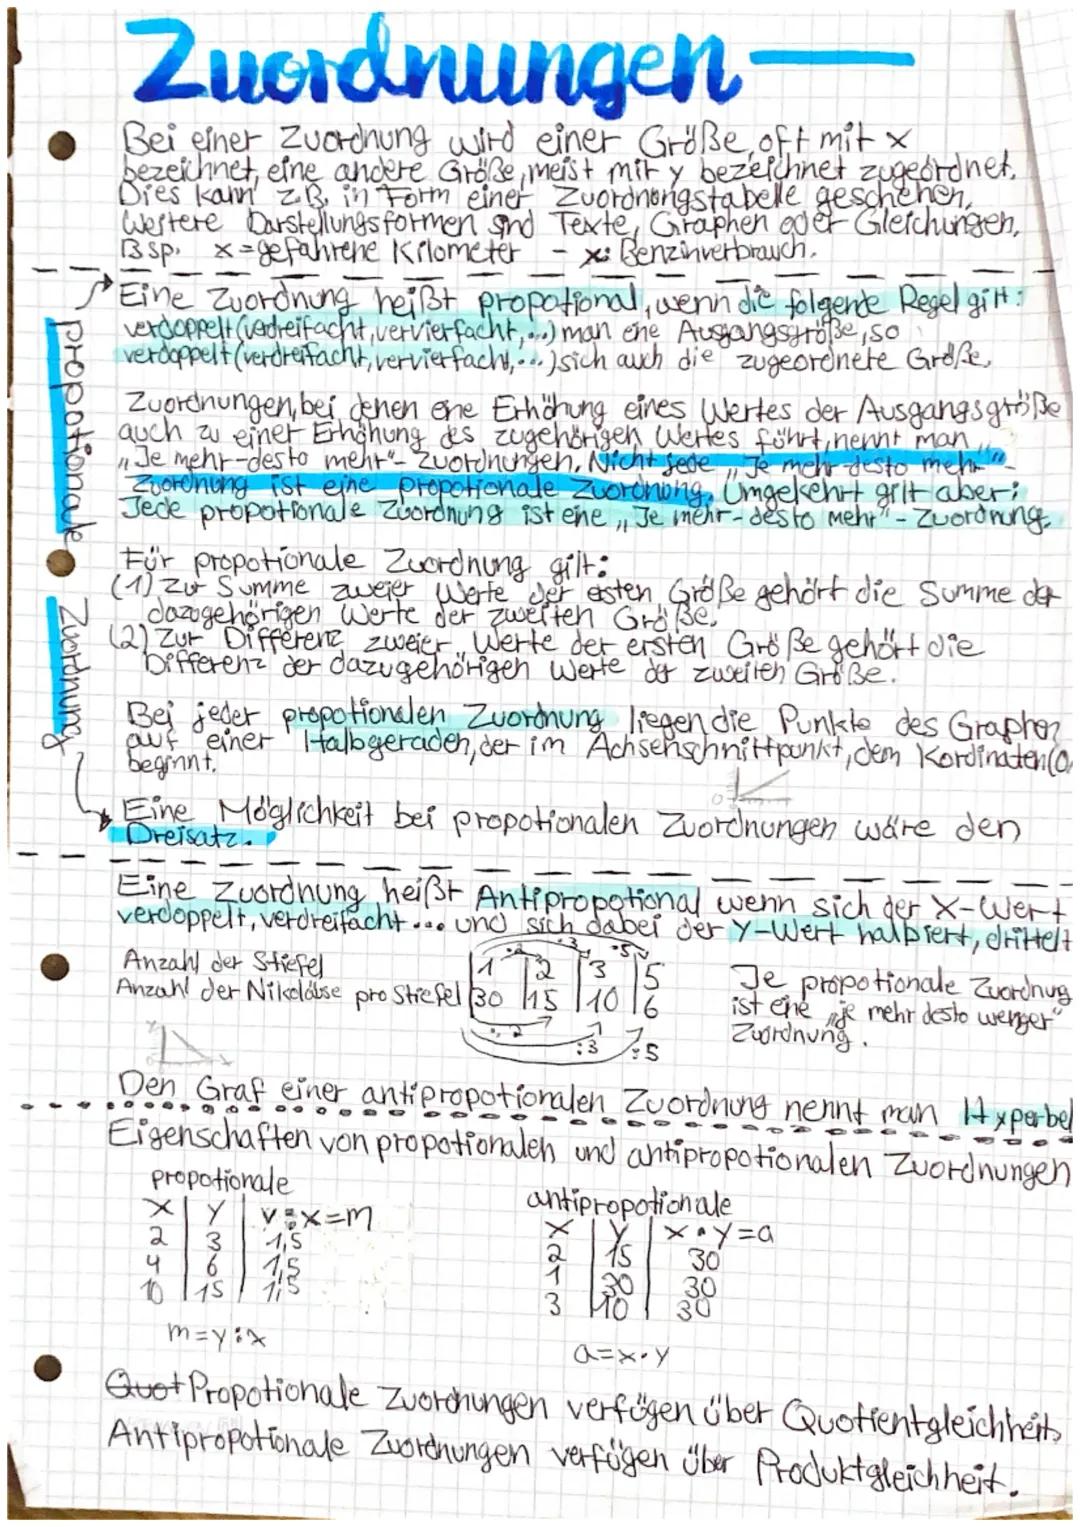 Zuordnungen
Bei einer Zuordnung wird einer Größe, oft mit x
bezeichnet, eine andere Größe, meist mit y bezeichnet zugeordnet.
Dies kann z.B. in Form einer Zuordnungstabelle geschehen.
Weitere Darstellungsformen sind Texte, Graphen oder Gleichungen.
Bsp. x=gefahrene Kilometer - x: Benzinverbrauch.
Eine Zuordnung heißt propotional, wenn die folgende Regel gilt:
verdoppelt (verdreifacht, vervierfacht,...) man eine Ausgangsgröße, so
verdoppelt (verdreifacht, vervierfacht,...) sich auch die zugeordnete Größe.
Zuordnungen, bei denen eine Erhöhung eines Wertes der Ausgangsgröße
auch zu einer Erhöhung des zugehörigen Wertes führt, nennt man
„Je mehr-desto mehr"- Zuordnungen. Nicht jede „Je mehr-desto mehr"-
Zuordnung ist eine propotionale Zuordnung. Umgekehrt gilt aber:
Jede propotionale Zuordnung ist eine „Je mehr-desto mehr"-Zuordnung.
propotionale Zuordnung
Für propotionale Zuordnung gilt:
(1) Zur Summe zweier Werte der ersten Größe gehört die Summe der
dazogehörigen Werte der zweiten Größe.
(2) Zur Differenz zweier Werte der ersten Größe gehört die
Differenz der dazugehörigen Werte der zweiten Größe.
Bei jeder propotionalen Zuordnung liegen die Punkte des Graphen
auf einer Halbgeraden, der im Achsenschnittpunkt, dem Kordinaten (0,
beginnt.
Eine Möglichkeit bei propotionalen Zuordnungen wäre den
Dreisatz.
Eine Zuordnung heißt Antipropotional wenn sich der X-Wert
verdoppelt, verdreifacht ... und sich dabei der Y-Wert halbiert, drittelt
·2 ·3 ·5
Anzahl der Stiefel 1 2 3 5
Anzahl der Nikoläuse pro Stiefel 30 15 10 6
:2 :3 :5
Je propotionale Zuordnug
ist eine „je mehr desto weniger"
Zuordnung.
Den Graf einer antipropotionalen Zuordnung nennt man Hyperbel
Eigenschaften von propotionalen und antipropotionalen Zuordnungen
propotionale
x y y:x=m
2 3 1,5
4 6 1,5
10 15 1,5
m=y:x
antipropotionale
x y x·y=a
2 15 30
1 30 30
3 10 30
a=x·y
Quot Propotionale Zuordnungen verfügen über Quotientgleichheit,
Antipropotionale Zuordnungen verfügen über Produktgleichheit.